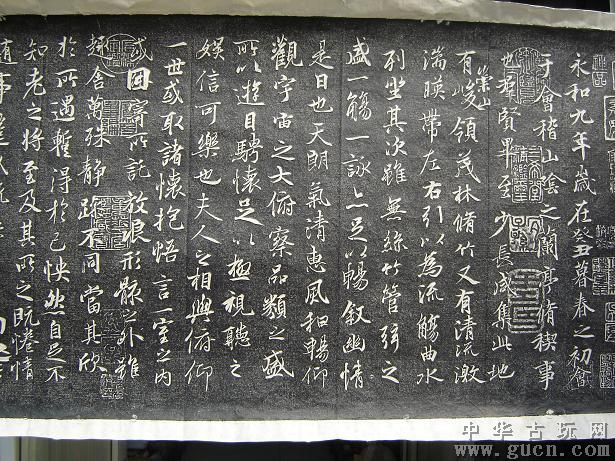 永和九年歲在癸丑暮春之初會
于會稽山陰之蘭亭脩稧事
也羣賢畢至少長咸集此地
有崇山峻領茂林脩竹又有清流激
湍暎帶左右引以為流觴曲水
列坐其次雖無絲竹管弦之
盛一觴一詠亦足以暢叙幽情
是日也天朗氣清惠風和暢仰
觀宇宙之大俯察品類之盛
所以遊目騁懷足以極視聽之
娛信可樂也夫人之相與俯仰
一世或取諸懷抱悟言一室之內
或因寄所託放浪形骸之外雖
趣舍萬殊靜躁不同當其欣
於所遇蹔得於己怏然自足不
知老之將至及其所之既惓情
隨事遷感
中华古玩网
www.gucn.com